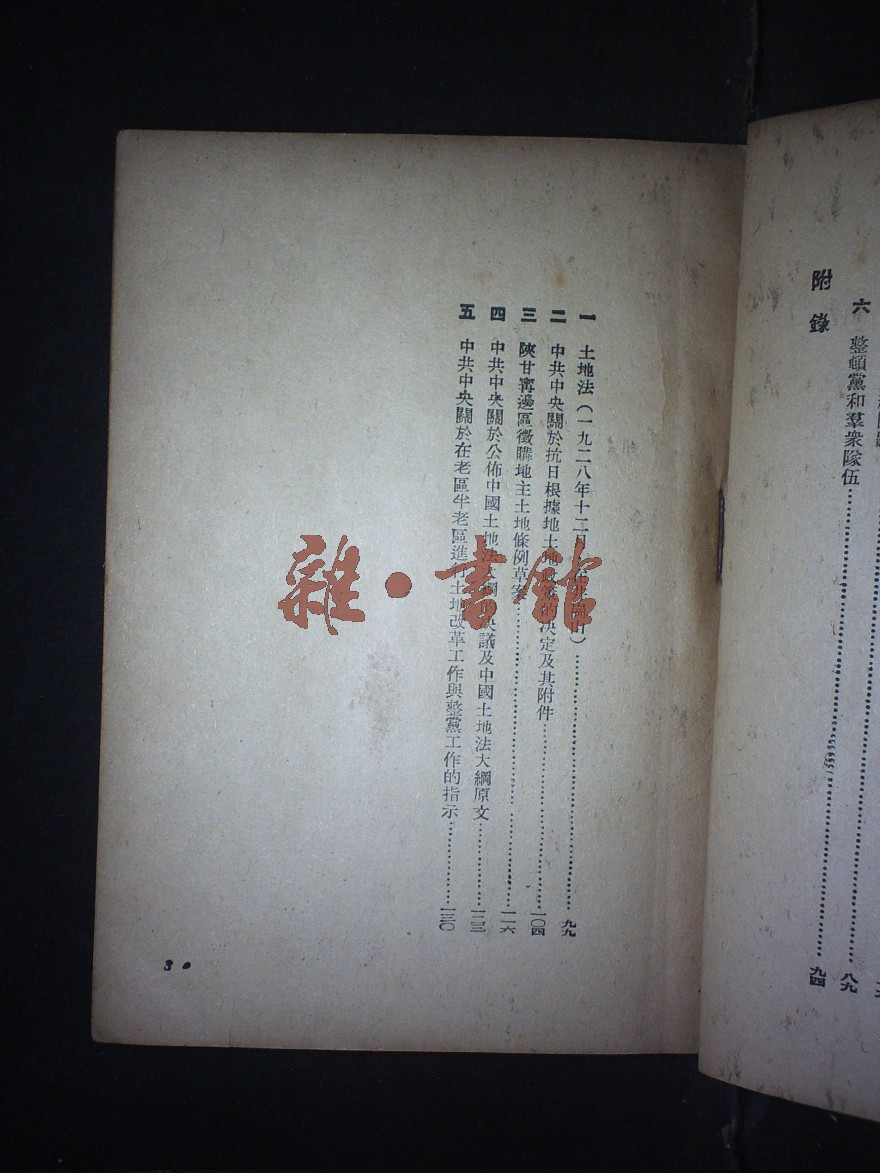 六　整頓黨和羣衆隊伍……八九
附錄……九四
一　土地法（一九二八年十二月……）……九九
二　中共中央關於抗日根據地土地政策的決定及其附件……一〇四
三　陝甘寧邊區徵購地主土地條例草案……一一六
四　中共中央關於公佈中國土地法大綱的決議及中國土地法大綱原文……一二三
五　中共中央關於在老區半老區進行土地改革工作與整黨工作的指示……一三〇
3
雜·書館